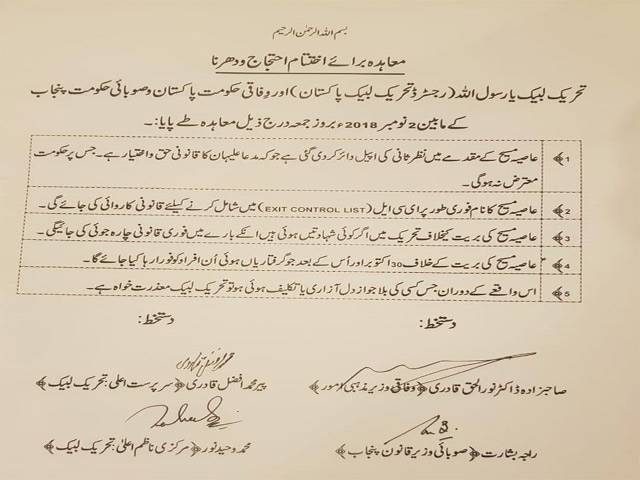 بسم اللہ الرحمٰن الرحیم
معاہدہ برائے اختتام احتجاج و دھرنا
تحریک لبیک یا رسول اللہ (رجسٹرڈ تحریک لبیک پاکستان) اور وفاقی حکومت پاکستان و صوبائی حکومت پنجاب
کے مابین 2 نومبر 2018ء بروز جمعہ درج ذیل معاہدہ طے پایا:۔
1 عاصیہ مسیح کے مقدمے میں نظر ثانی کی اپیل دائر کردی گئی ہے جو کہ مدعا علیہان کا قانونی حق و اختیار ہے۔ جس پر حکومت
معترض نہ ہوگی۔
2 عاصیہ مسیح کا نام فوری طور پر ای سی ایل (EXIT CONTROL LIST) میں شامل کرنے کیلئے قانونی کاروائی کی جائے گی۔
3 عاصیہ مسیح کی بریت کیخلاف تحریک میں اگر کوئی شہادتیں ہوئی ہیں انکے بارے میں فوری قانونی چارہ جوئی کی جائیگی۔
4 عاصیہ مسیح کی بریت کے خلاف 30 اکتوبر اور اُس کے بعد جو گرفتاریاں ہوئی اُن افراد کو فوراً رہا کیا جائے گا۔
5 اس واقعے کے دوران جس کسی کی بلا جواز دل آزاری یا تکلیف ہوئی ہو تو تحریک لبیک معذرت خواہ ہے۔
دستخط: دستخط:
صاحبزادہ ڈاکٹر نور الحق قادری ﴿وفاقی وزیر مذہبی امور﴾ پیر محمد افضل قادری ﴿سرپرست اعلی: تحریک لبیک﴾
راجہ بشارت ﴿صوبائی وزیر قانون پنجاب﴾ محمد وحید نور ﴿مرکزی ناظم اعلیٰ: تحریک لبیک﴾